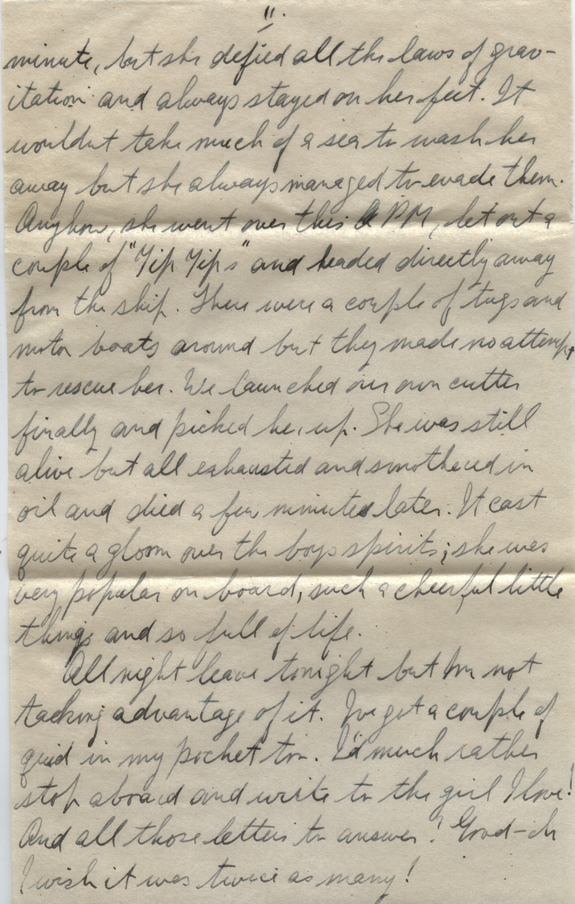 11.
minute, but she defied all the laws of grav-
itation and always stayed on her feet. It
wouldnt take much of a sea to wash her
away but she always managed to evade them.
Anyhow, she went over this PM, let out a
couple of "Yip Yips" and headed directly away
from the ship. There were a couple of tugs and
motor boats around but they made no attempt
to rescue her. We launched our own cutter
finally and picked her up. She was still
alive but all exhausted and smothered in
oil and died a few minutes later. It cast
quite a gloom over the boys spirits; she was
very popular on board, such a cheerful little
thing and so full of life.
All night leave tonight but Im not
tacking advantage of it. Ive got a couple of
quid in my pocket too. I'd much rather
stop aboard and write to the girl I love!
And all those letters to answer! Good-oh
I wish it was twice as many!